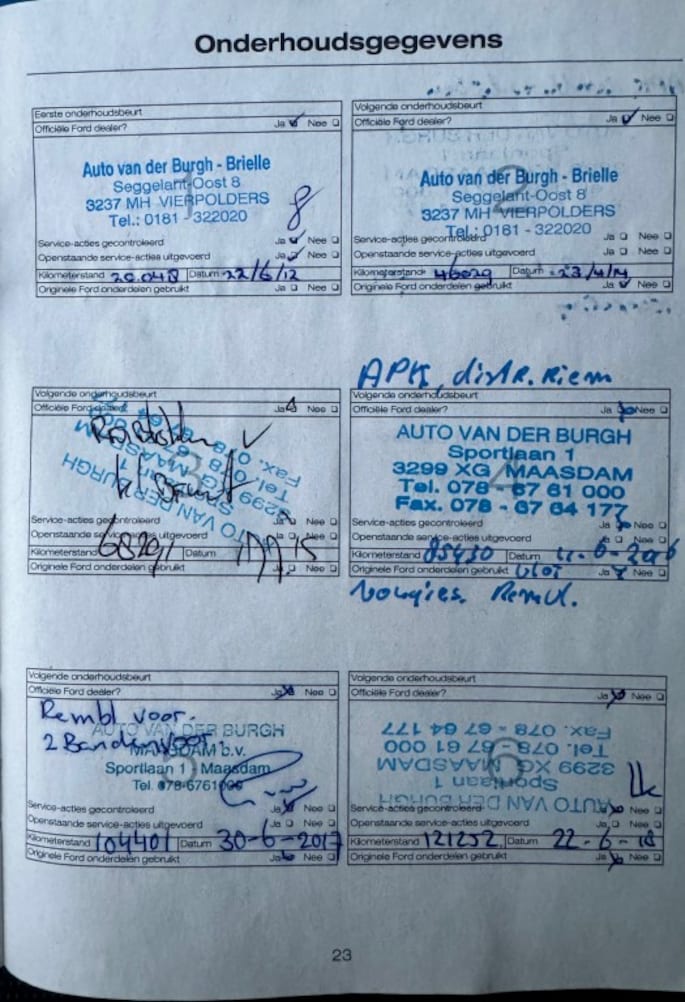 Onderhoudsgegevens
Eerste onderhoudsbeurt
Officiële Ford dealer? Ja Nee
1
Auto van der Burgh - Brielle
Seggelant-Oost 8
3237 MH VIERPOLDERS
Tel.: 0181 - 322020
Service-acties gecontroleerd Ja Nee
Openstaande service-acties uitgevoerd Ja Nee
Kilometerstand 20.048 Datum 22/6/12
Originele Ford onderdelen gebruikt Ja Nee
Volgende onderhoudsbeurt
Officiële Ford dealer? Ja Nee
2
Auto van der Burgh - Brielle
Seggelant-Oost 8
3237 MH VIERPOLDERS
Tel.: 0181 - 322020
Service-acties gecontroleerd Ja Nee
Openstaande service-acties uitgevoerd Ja Nee
Kilometerstand 46029 Datum 23/4/14
Originele Ford onderdelen gebruikt Ja Nee
Volgende onderhoudsbeurt
Officiële Ford Ja Nee
3
AUTO VAN DER BURGH
3299 XG MAASDAM
Tel. 078
Fax. 078
Service-acties gecontroleerd Ja Nee
Openstaande service-acties uitgevoerd Ja Nee
Kilometerstand Datum
Originele Ford onderdelen gebruikt Ja Nee
APK, distR. Riem
Volgende onderhoudsbeurt
Officiële Ford dealer? Ja Nee
4
AUTO VAN DER BURGH
Sportlaan 1
3299 XG MAASDAM
Tel. 078 - 67 61 000
Fax. 078 - 67 64 177
Service-acties gecontroleerd Ja Nee
Openstaande service-acties uitgevoerd Ja Nee
Kilometerstand 85430 Datum
Originele Ford onderdelen gebruikt Ja Nee
bougies. Remvl.
Volgende onderhoudsbeurt
Officiële Ford dealer? Ja Nee
Rembl voor.
2 Banden voor.
5
AUTO VAN DER BURGH
MAASDAM b.v.
Sportlaan 1 Maasdam
Tel. 078-6761000
Service-acties gecontroleerd Ja Nee
Openstaande service-acties uitgevoerd Ja Nee
Kilometerstand 104401 Datum 30-6-2017
Originele Ford onderdelen gebruikt Ja Nee
Volgende onderhoudsbeurt
Officiële Ford dealer? Ja Nee
6
AUTO VAN DER BURGH
Sportlaan 1
3299 XG MAASDAM
Tel. 078 - 67 61 000
Fax. 078 - 67 64 177
Service-acties gecontroleerd Ja Nee
Openstaande service-acties uitgevoerd Ja Nee
Kilometerstand 121252 Datum 22-6-18
Originele Ford onderdelen gebruikt Ja Nee
23